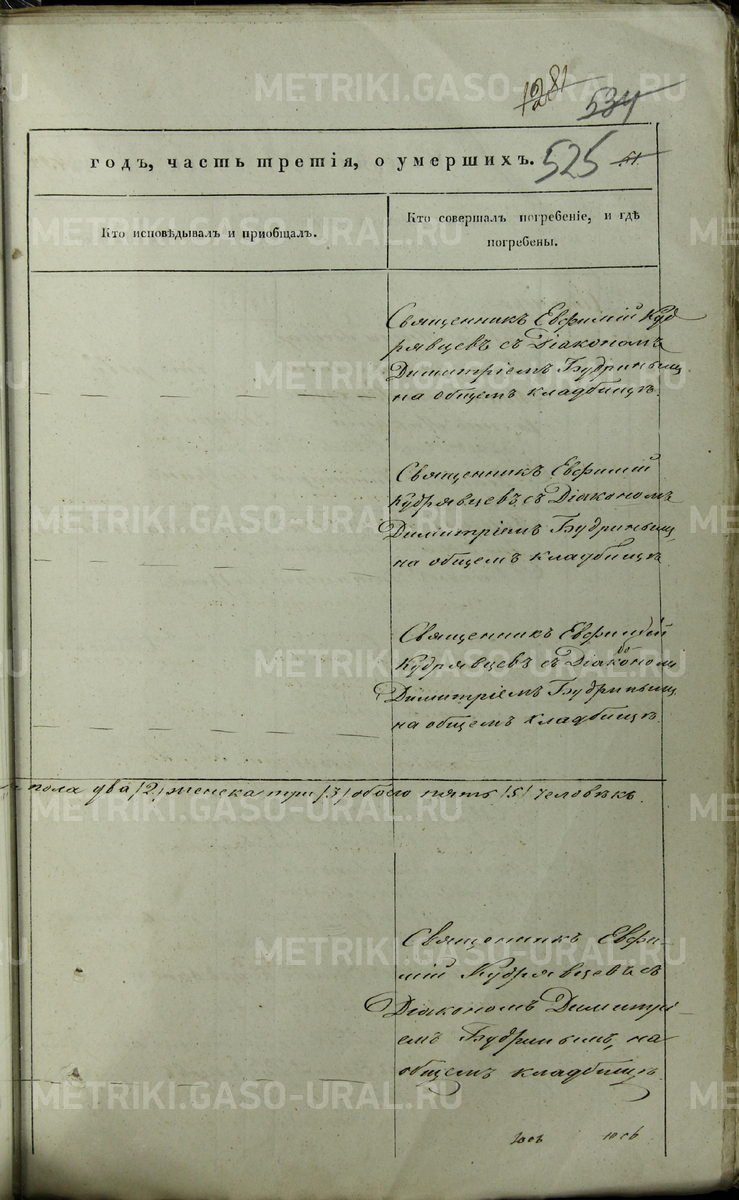 1281
534
годъ, часть третія, о умершихъ. 525
Кто исповѣдывалъ и пріобщалъ.
Кто совершалъ погребеніе, и гдѣ
погребены.
Священникъ Евфимій Куд
рявцевъ съ Діакономъ
Димитріемъ Будринымъ
на общемъ кладбищѣ.
Священникъ Евфимій
Кудрявцевъ, съ Діакономъ
Димитріемъ Будринымъ
на общемъ кладбищѣ
Священникъ Евфимій
Кудрявцевъ съ Діакономъ
Димитріемъ Будринымъ
на общемъ кладбищѣ.
пола два /2/, женска три /3/ обоего пять /5/ человѣкъ.
Священникъ Евфи-
мій Кудрявцевъ съ
Діакономъ Димитрі-
емъ Будринымъ, на
общемъ кладбищѣ.
METRIKI.GASO-URAL.RU